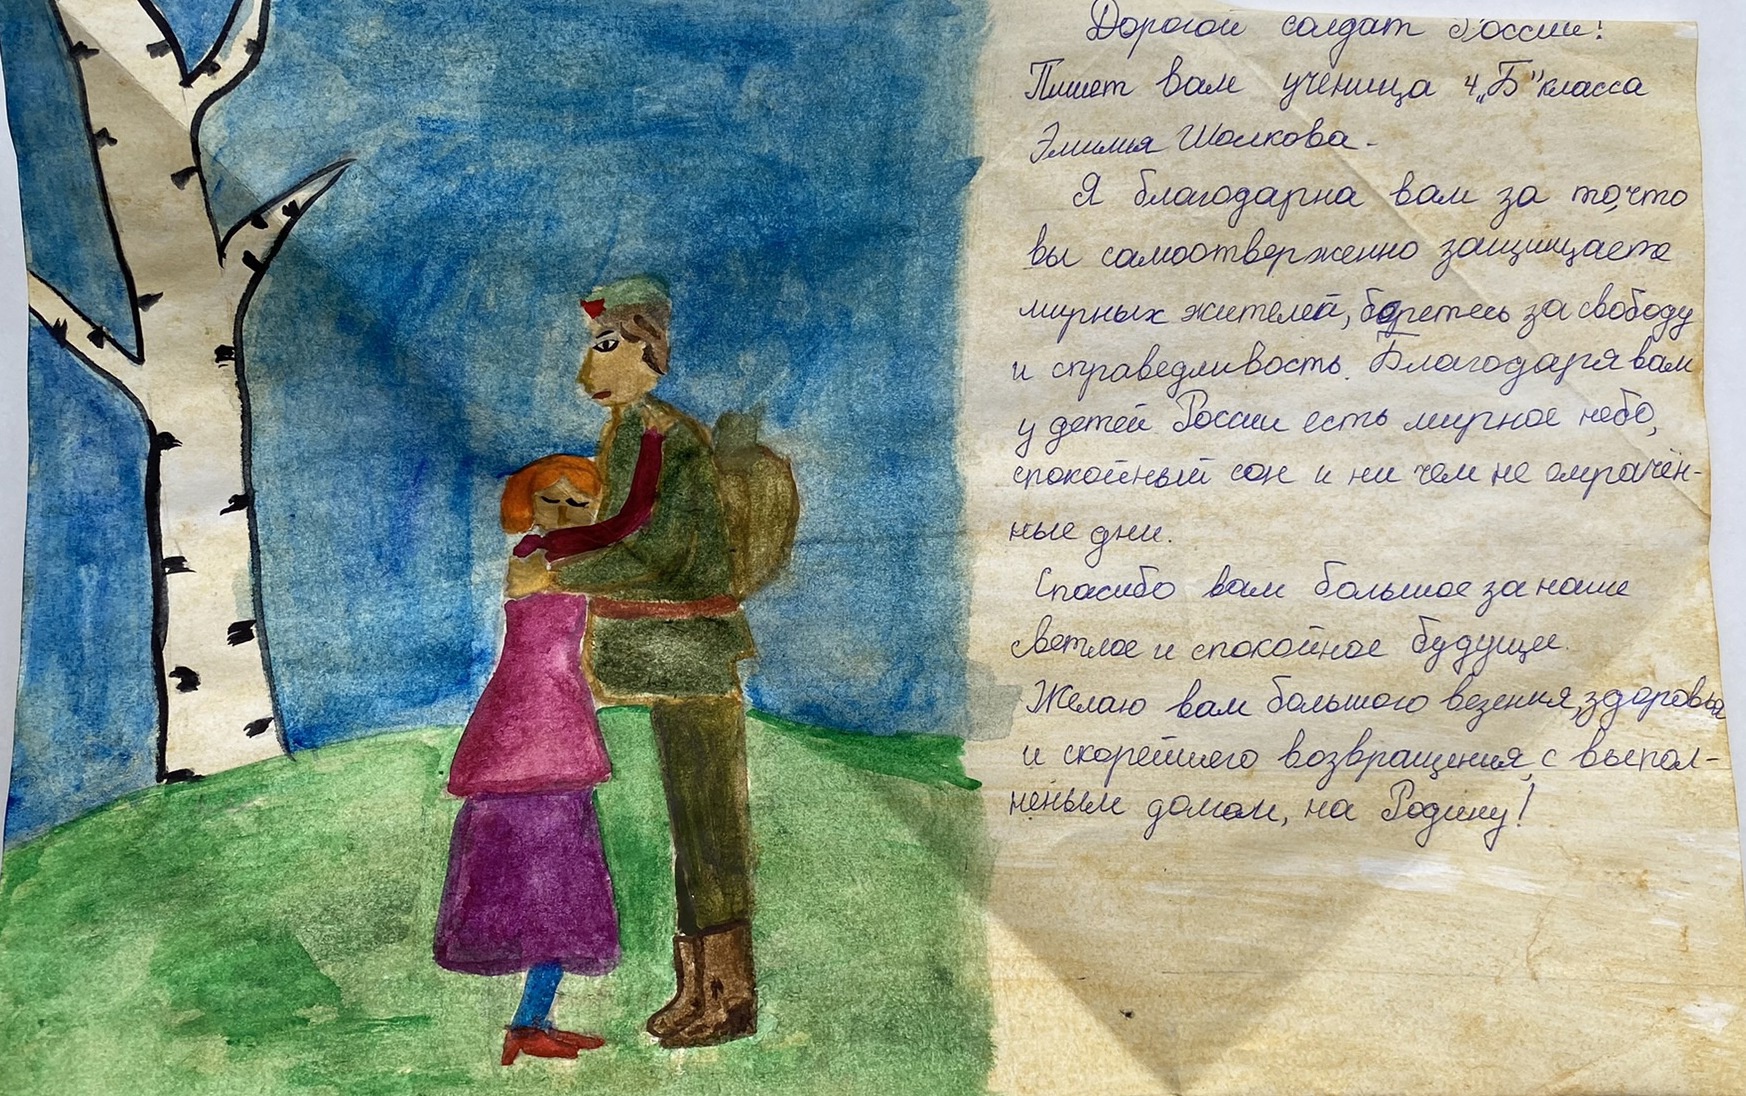 Дорогой солдат России!
Пишет вам ученица 4 „Б" класса
Эмилия Шолкова.
Я благодарна вам за то, что
вы самоотверженно защищаете
мирных жителей, боретесь за свободу
и справедливость. Благодаря вам
у детей России есть мирное небо,
спокойный сон и ни чем не омрачён-
ные дни.
Спасибо вам большое за наше
светлое и спокойное будущее.
Желаю вам большого везения, здоровья
и скорейшего возвращения, с выпол-
неным долгом, на Родину!